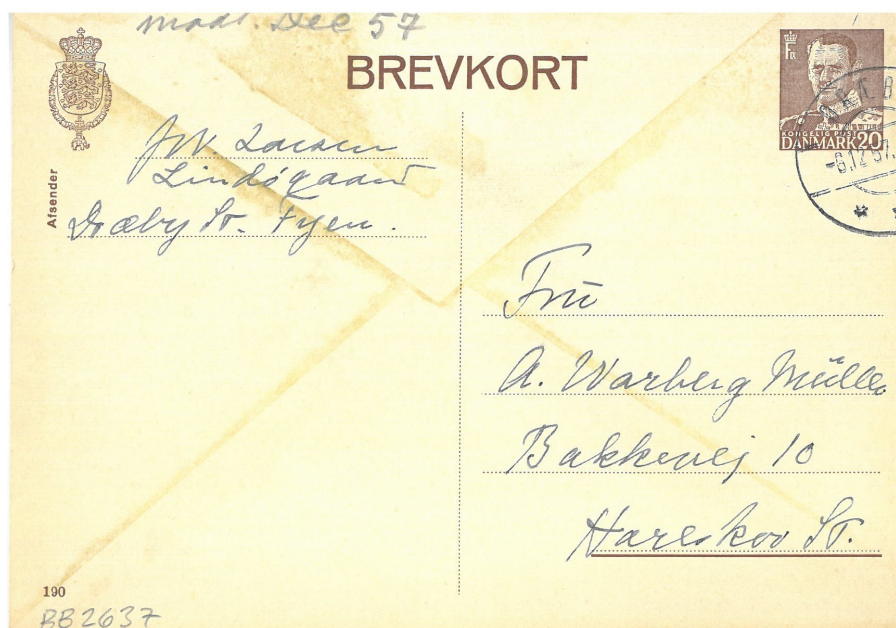 modt. Dec 57
BREVKORT
KONGELIG POST
DANMARK 20
6.12.57.
Afsender
JW Larsen
Lindøgaard
Dræby St. Fyen.
Fru
A. Warberg Müller
Bakkevej 10
Hareskov St.
190
BB2637